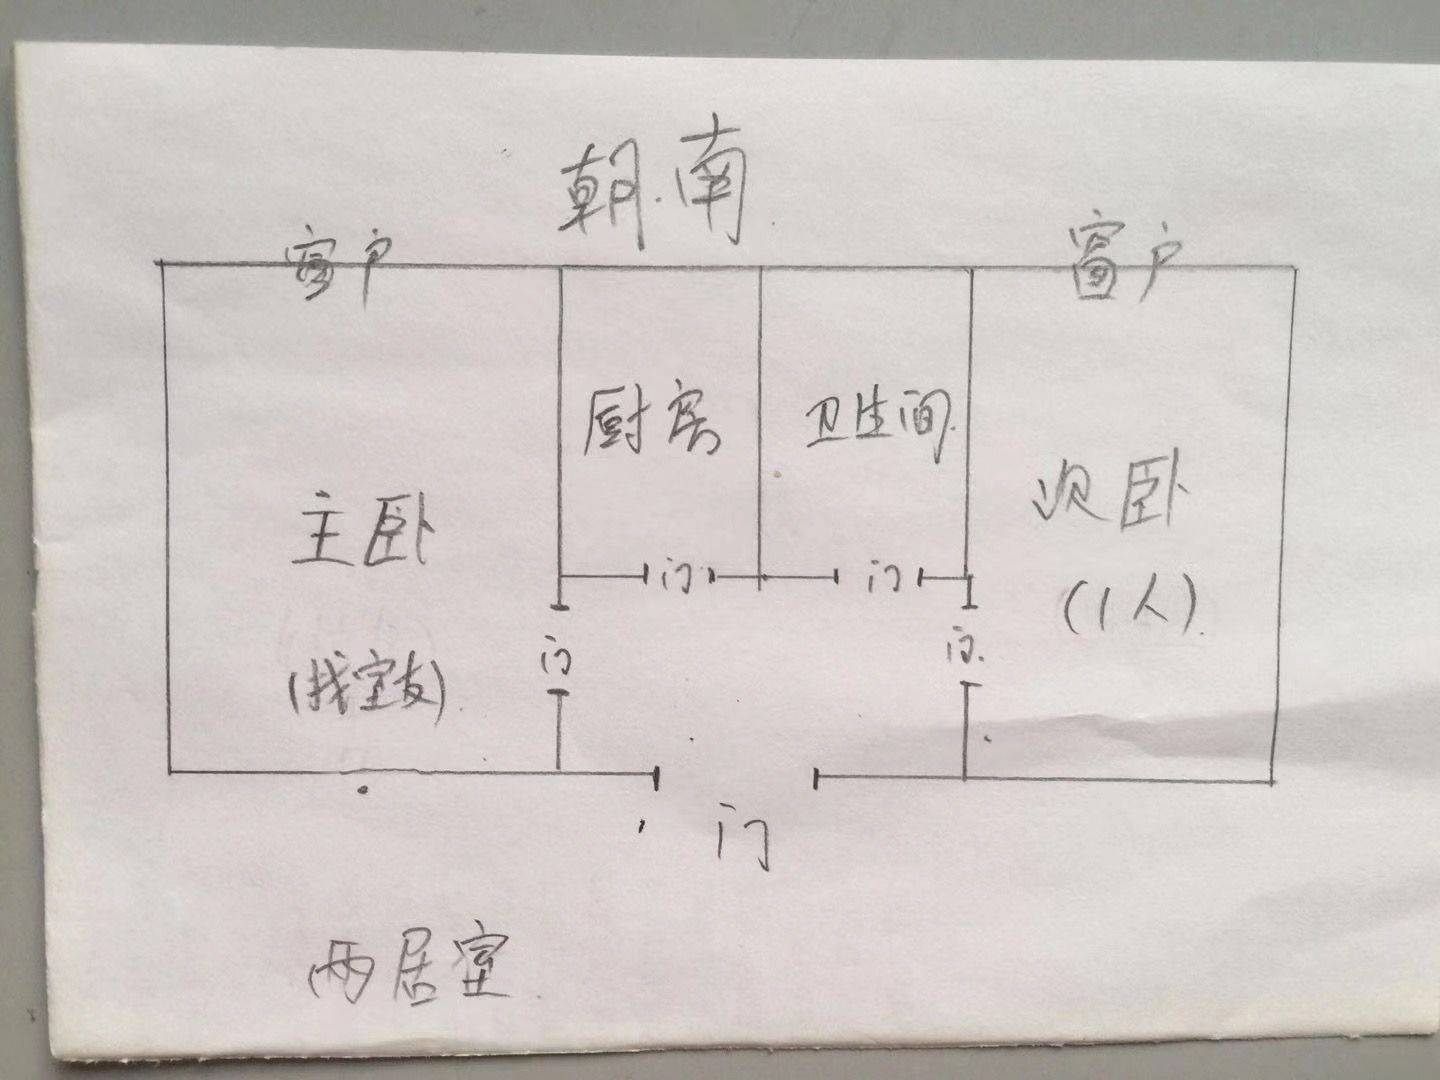 朝南
窗户
窗户
厨房
卫生间
主卧
次卧
(找室友)
(1人)
门
门
门
门
门
两居室